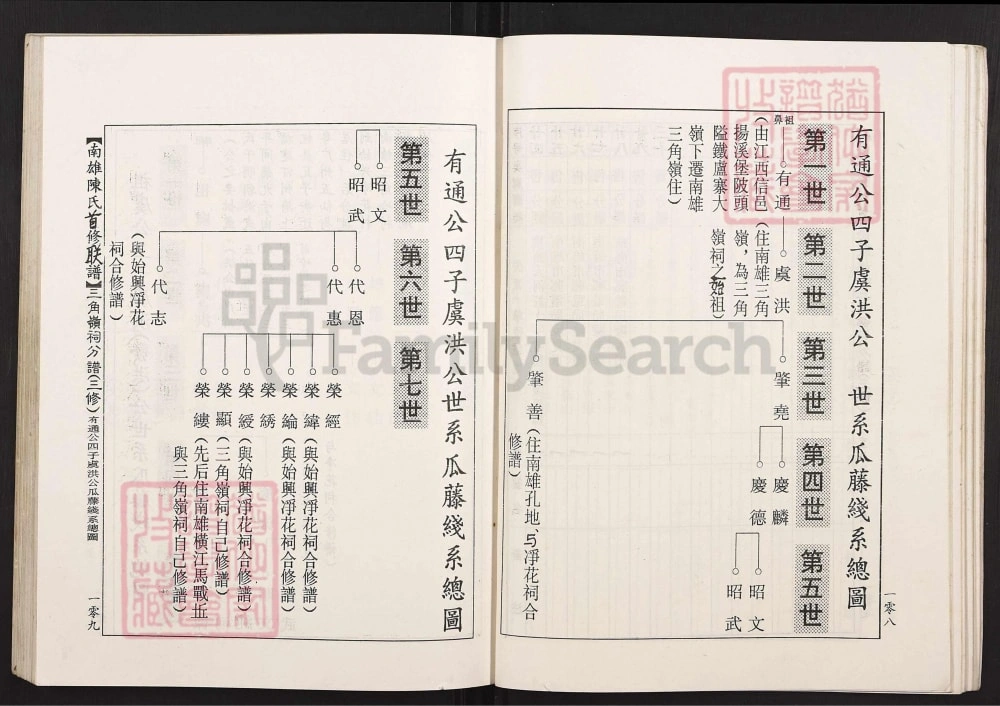 有通公四子虞洪公　世系瓜藤綫系總圖
第一世
第二世
第三世
第四世
第五世
鼻祖
有通
(由江西信邑
揚溪堡陂頭
隘鐵盧寨大
嶺下遷南雄
三角嶺住)
虞洪
(住南雄三角
嶺，為三角
嶺祠之始祖)
肇堯
肇善
(住南雄孔地、与凈花祠合
修譜)
慶麟
慶德
昭文
昭武
一零八
有通公四子虞洪公世系瓜藤綫系總圖
第五世
第六世
第七世
昭文
昭武
代恩
代惠
代志
(與始興凈花
祠合修譜)
榮經
榮緯(與始興凈花祠合修譜)
榮綸(與始興凈花祠合修譜)
榮綉
榮綬(與始興凈花祠合修譜)
榮顯(三角嶺祠自己修譜)
榮縷(先后住南雄橫江馬戰坵
與三角嶺祠自己修譜)
【南雄陳氏首修联譜】三角嶺祠分譜(三修)有通公四子虞洪公瓜藤綫系總圖
一零九
FamilySearch